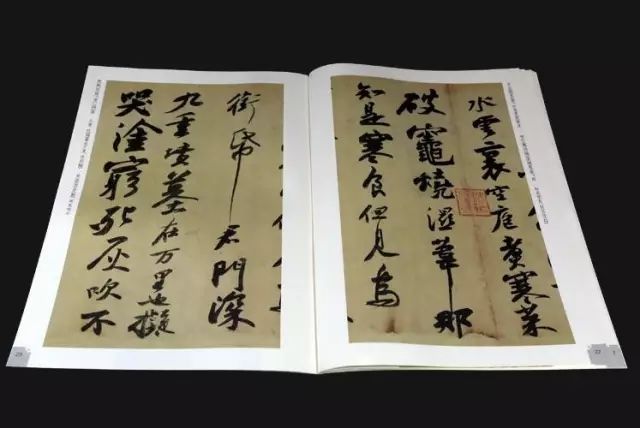 水雲裏空庖煮寒菜
破竈燒濕葦那
知是寒食但見烏
22
銜帋君門深
九重墳墓在万里也擬
哭塗窮死灰吹不
23